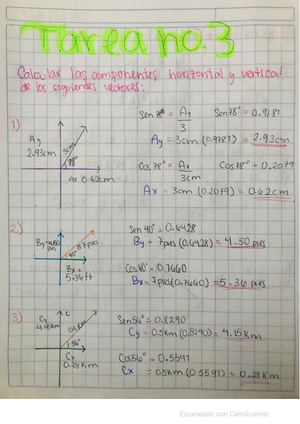 Tarea no. 3
Calcular las componentes horizontal y vertical
de los siguientes vectores:
1)
Ay
2.93cm
3cm
78°
Ax 0.62cm
Sen 78° = Ay Sen 78° = 0.9781
3
Ay = 3cm (0.9781) = 2.93cm
Cos 78° = Ax Cos 78° = 0.2079
3cm
Ax = 3cm (0.2079) = 0.62cm
2)
By = 4.50
pies
B 7 pies
40°
Bx =
5.36 ft
Sen 40° = 0.6428
By = 7pies (0.6428) = 4.50 pies
Cos 40° = 0.7660
Bx = 7pies (0.7660) = 5.36 pies
3)
Cy
4.15 Km
C
0.5Km
56°
Cx
0.28 Km
Sen 56° = 0.8290
Cy = 0.5Km (0.8290) = 4.15 Km
Cos 56° = 0.5591
Cx = 0.5Km (0.5591) = 0.28 Km
Escaneado con CamScanner